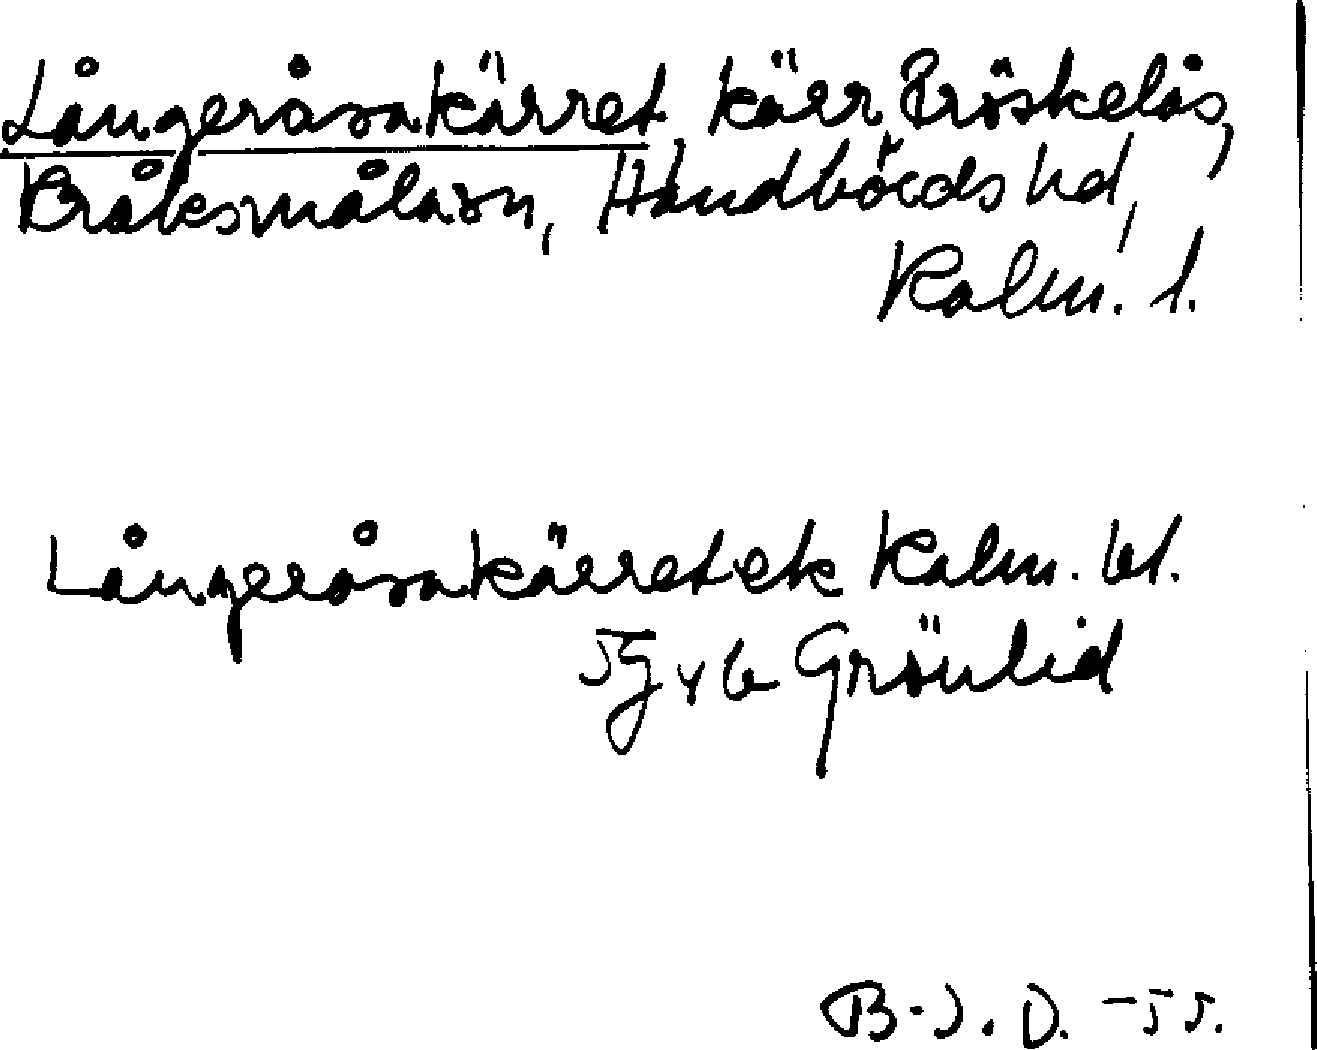 Långeråsakärret kärr Bröskelås,
Bråtesmåla sn, Handbörds hd,
Kalm. l.
Långeråsakärret ek Kalm. bl.
5G y b Grönlid
B-J. D. -55.